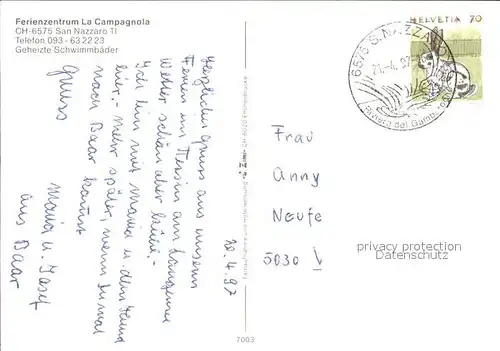 Ferienzentrum La Campagnola
CH-6575 San Nazzaro TI
Telefon 093 - 63 22 23
Geheizte Schwimmbäder
20.4.97
Herzlichen Gruss aus unsern
Ferien im Tessin am Langensee
Wetter schön aber kühl.
Ich bin mit Mama u. dem Hund
hier. Mehr später, wenn Du mal
nach Baar kommst
Gruss
Maria u. Josef
aus Baar
7003
HELVETIA 70
6575 S. NAZZARO
21.-4.97
Riviera del Gambarogno
Frau
Anny
5030
privacy protection
Datenschutz